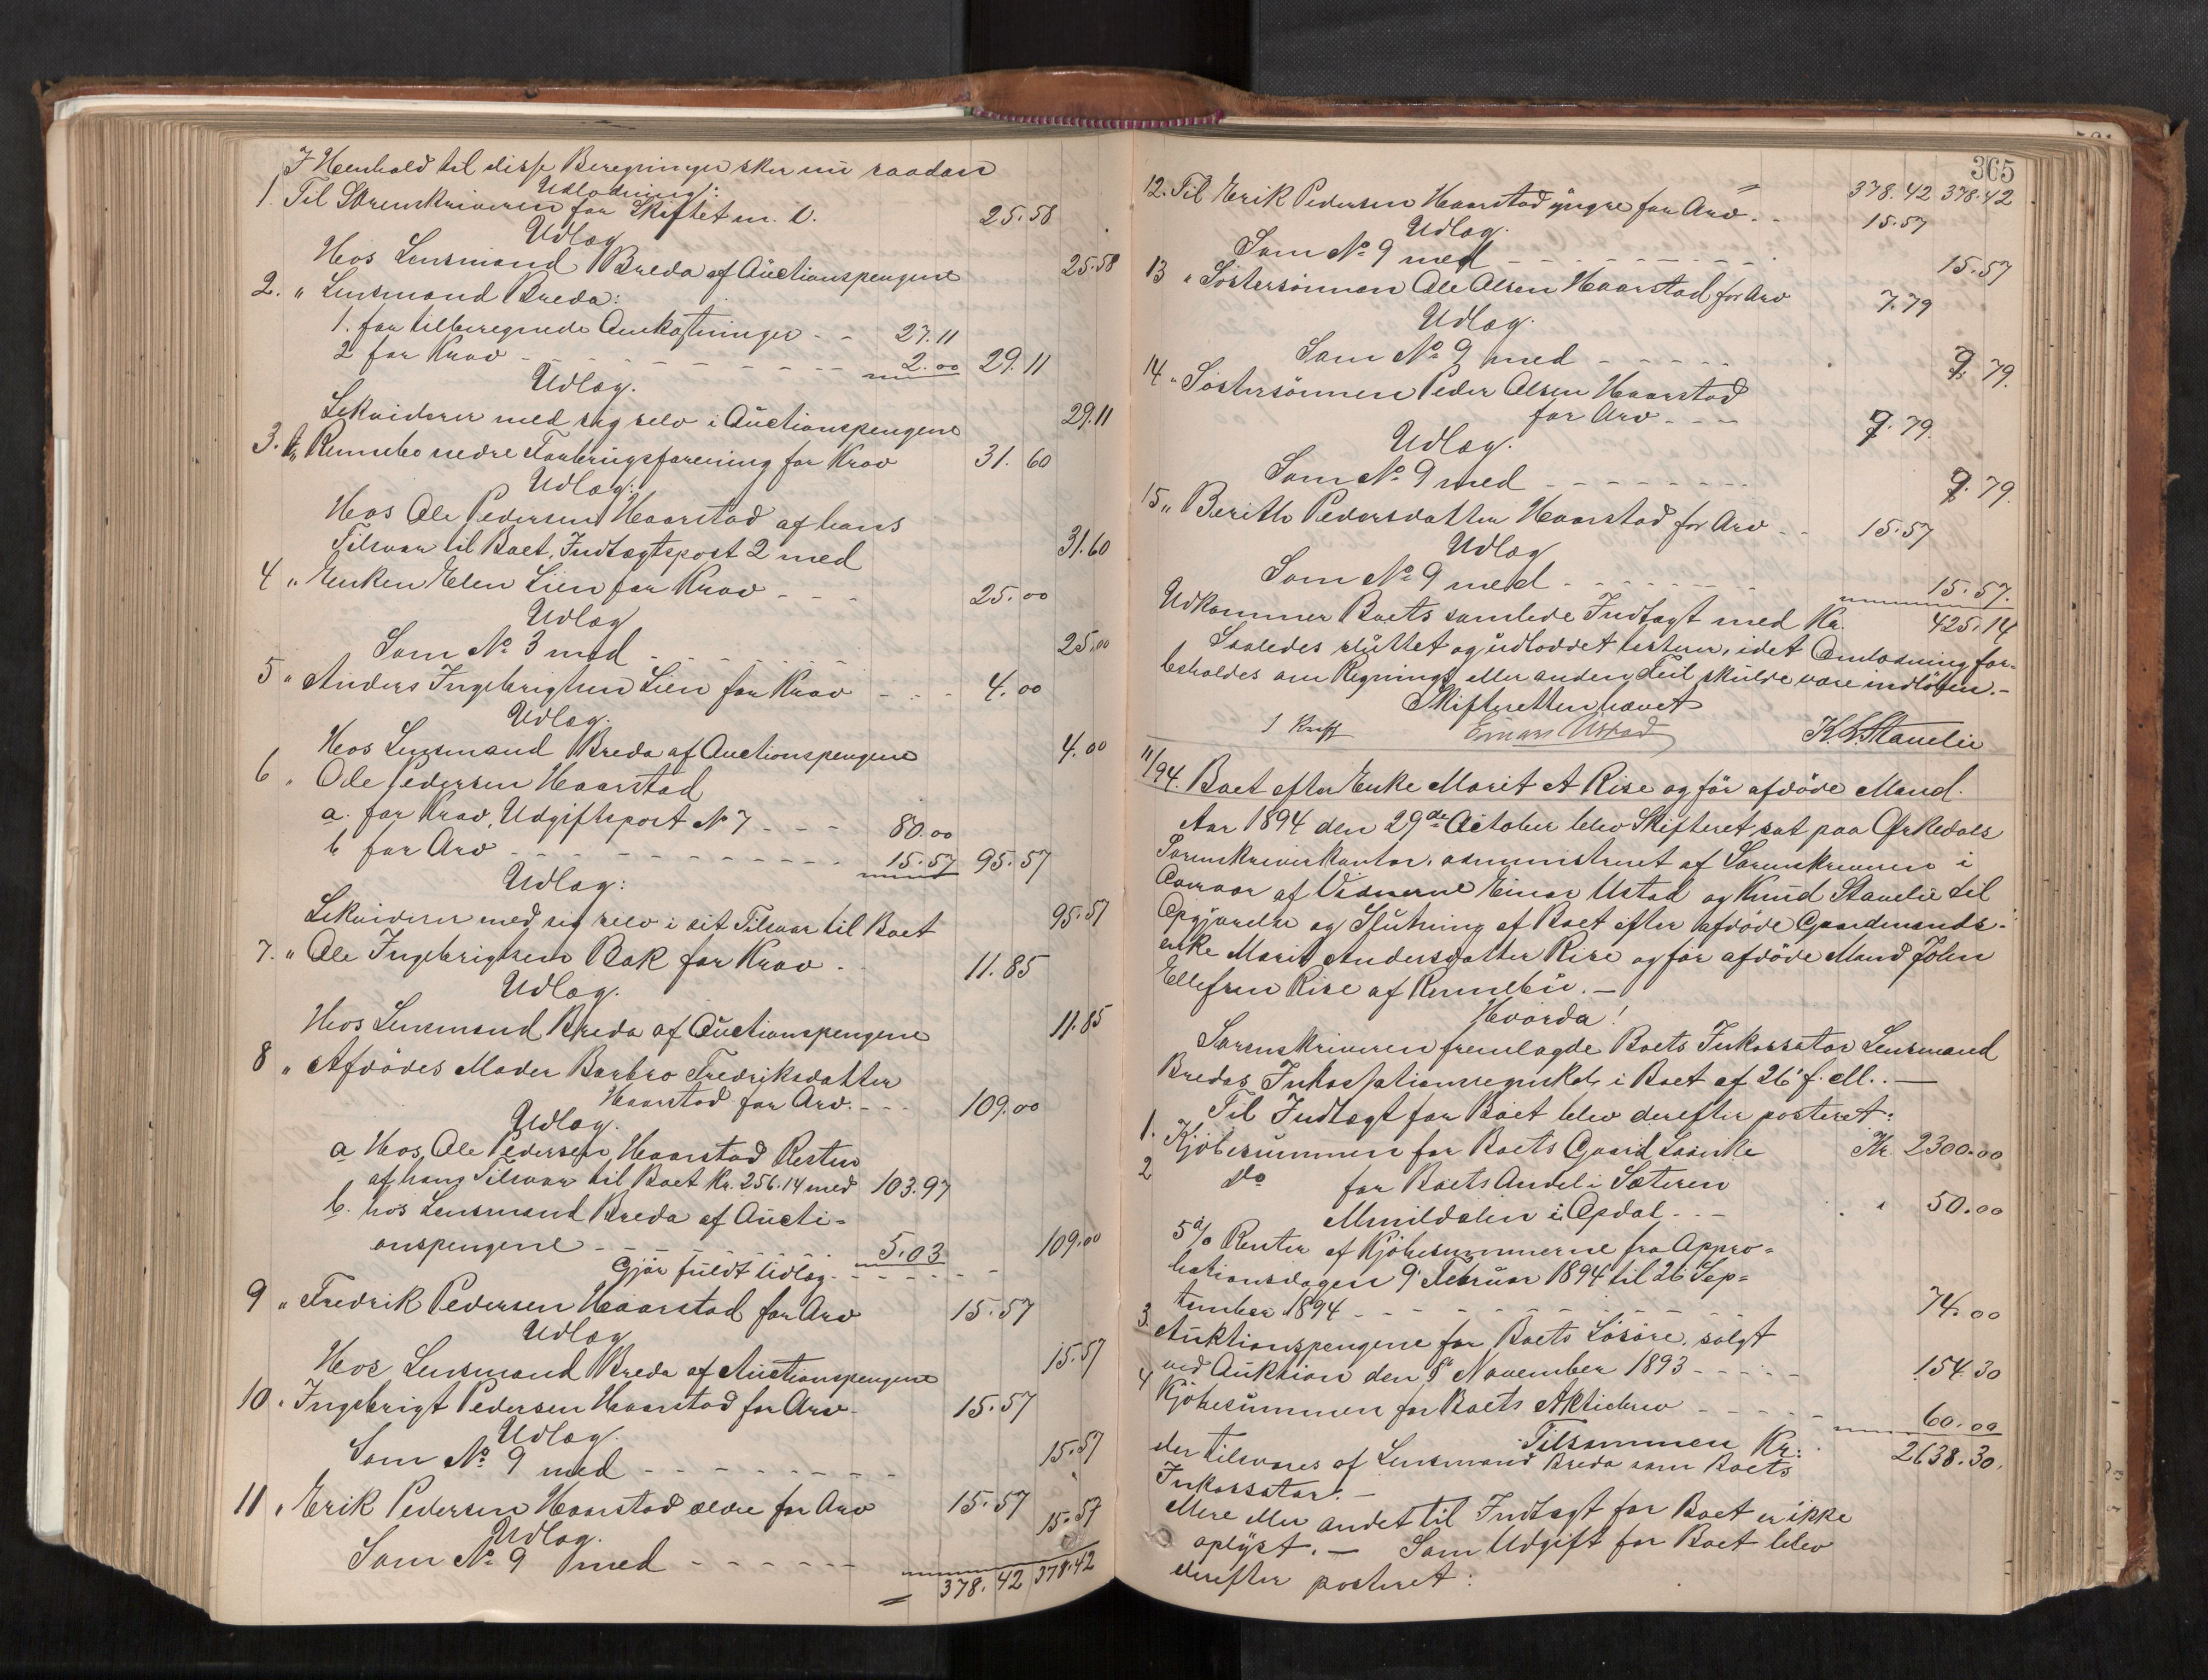 I Henhold til disse Beregninger sker nu saadan
Udlodning:
1. Til Sorenskriveren for Skiftet m. V. 25.58
Udlæg
Hos Lensmand Breda af Auctionspengene 25.58
2. " Lensmand Breda:
1. for tilberegnede Omkostninger - - 27.11
2 for Krav - - - - - - - 2.00 29.11
Udlæg.
Likviderer med sig selv i Auctionspengene 29.11
3. " Rennebo nedre Forbrugsforening for Krav 31.60
Udlæg:
Hos Ole Pedersen Haarstad af hans
Tilsvar til Boet, Indtægtspost 2 med 31.60
4 " Enken Elen Lien for Krav - - - 25.00
Udlæg
Som No 3 med - - - - - - - 25.00
5 " Anders Ingebrigtsen Lien for Krav - - - 4.00
Udlæg.
Hos Lensmand Breda af Auctionspengene 4.00
6 " Ole Pedersen Haarstad
a. for Krav, Udgiftspost No 7 - - - 80.00
b for Arv - - - - - - - - - - 15.57 95.57
Udlæg:
Likviderer med sig selv i sit Tilsvar til Boet 95.57
7. " Ole Ingebrigtsen Bak for Krav - 11.85
Udlæg.
Hos Lensmand Breda af Auctionspengene 11.85
8 " Afdødes Moder Barbro Fredriksdatter
Haarstad for Arv. - - - 109.00
Udlæg.
a Hos Ole Pedersen Haarstad Resten
af hans Tilsvar til Boet Kr. 256.14 med 103.97
b. hos Lensmand Breda af Aucti-
onspengene - - - - - - - 5.03 109.00
Gjør fuldt Udlæg - - - - - -
9 " Fredrik Pedersen Haarstad for Arv 15.57
Udlæg
Hos Lensmand Breda af Auctionspengene 15.57
10 " Ingebrigt Pedersen Haarstad for Arv - 15.57
Udlæg.
Som No 9 med - - - - - - - - 15.57
11 " Erik Pedersen Haarstad ældre for Arv 15.57
Udlæg.
Som No 9 med - - - - - - 15.57
378.42 378.42
365
378.42 378.42
12. Til Erik Pedersen Haarstad yngre for Arv - - 15.57
Udlæg.
Som No 9 med - - - - - - - - - 15.57
13 " Søstersønnen Ole Olsen Haarstad for Arv 7.79
Udlæg.
Som No 9 med - - - - - 7.79.
14 " Søstersønnen Peder Olsen Haarstad
for Arv - - - 7.79.
Udlæg.
Som No 9 med - - - - - - - - 7.79.
15 " Berith Pedersdatter Haarstad for Arv - - 15.57
Udlæg
Som No 9 med - - - - - - - - 15.57.
Udkommer Boets samlede Indtægt med Kr. 425.14
Saaledes sluttet og udloddet testerer, idet Omlodning for-
beholdes om Regnings eller anden Feil skulde være indløben. -
Skifteretten hævet
Einar Ustad K. L. Stavelie
11/94. Boet efter Enke Marit A Rise og før afdøde Mand.
Aar 1894 den 29de October blev Skifteret sat paa Orkedals
Sorenskriverkontor, administreret af Sorenskriveren i
Overvær af Vidnerne Einar Ustad og Knud Stavelie til
Opgjørelse og Slutning af Boet efter afdøde Gaardmands-
enke Marit Andersdatter Rise og før afdøde Mand John
Ellefsen Rise af Rennebu. -
Hvorda!
Sorenskriveren fremlagde Boets Inkassator Lensmand
Bredas Inkassationsregnskab i Boet af 26' f. M. . -
Til Indtægt for Boet blev derefter posteret:
1. Kjøbesummen for Boets Gaard Kr. 2300.00
2 do for Boets Andel i Sæteren
i Opdal - - - " 50.00
5% Renter af Kjøbesummerne fra Appro-
bationsdagen 9' Februar 1894 til 26' Sep-
tember 1894 - - - - - - - - - - 74.00
3. Auktionspengene for Boets Løsøre, solgt
ved Auktion den 8' November 1893 - - - - - 154.30
4 Kjøbesummen for Boets Aktiebrev - - - - - 60.00
Tilsammen Kr. 2638.30.
der tilsvares af Lensmand Breda som Boets
Inkassator. -
Mere eller andet til Indtægt for Boet er ikke
oplyst. - Som Udgift for Boet blev
derefter posteret: